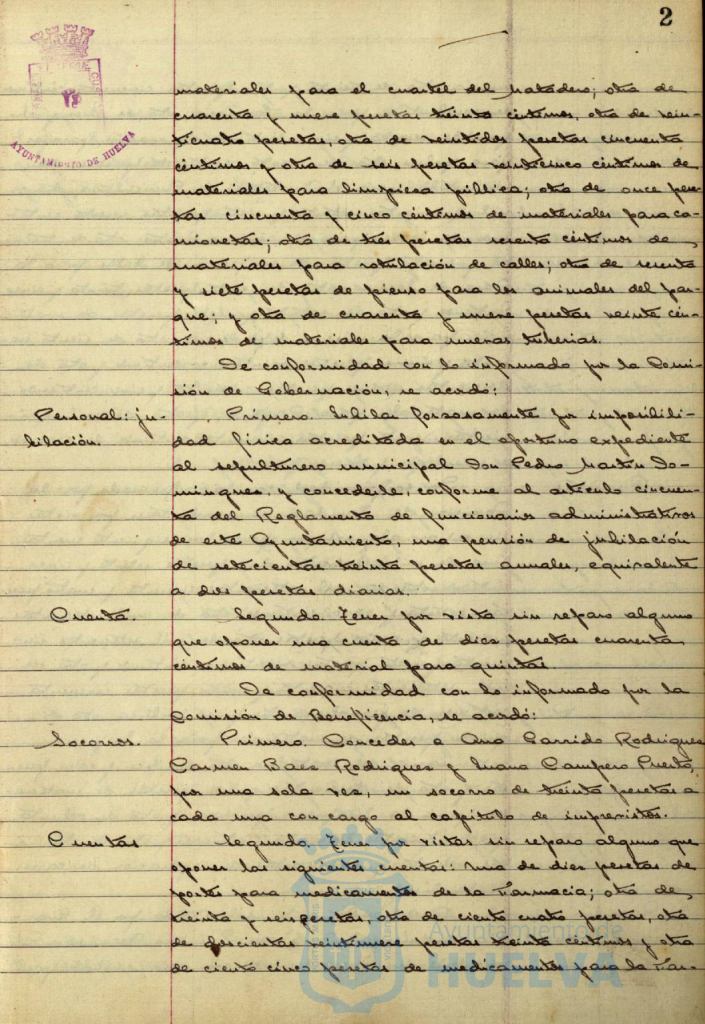 2
AYUNTAMIENTO DE HUELVA
materiales para el cuartel del Matadero; otra de
cuarenta y nueve pesetas treinta céntimos, otra de vein-
ticuatro pesetas, otra de veintidos pesetas cincuenta
céntimos y otra de seis pesetas veinticinco céntimos de
materiales para limpieza pública; otra de once pese-
tas cincuenta y cinco céntimos de materiales para ca-
mionetas; otra de tres pesetas sesenta céntimos de
materiales para rotulación de calles; otra de sesenta
y siete pesetas de pienso para los animales del par-
que; y otra de cuarenta y nueve pesetas veinte cén-
timos de materiales para nuevas tuberias.
De conformidad con lo informado por la Comi-
sión de Gobernación, se acordó:
Personal: ju-
bilación.
Primero. Jubilar forzosamente por imposibili-
dad física acreditada en el oportuno expediente
al sepulturero municipal Don Pedro Martin Do-
minguez, y concederle, conforme al artículo cincuen-
ta del Reglamento de funcionarios administrativos
de este Ayuntamiento, una pensión de jubilación
de setecientas treinta pesetas anuales, equivalente
a dos pesetas diarias.
Cuenta.
Segundo. Tener por vista sin reparo alguno
que oponer una cuenta de diez pesetas cuarenta
céntimos de material para quintas.
De conformidad con lo informado por la
Comisión de Beneficencia, se acordó:
Socorros.
Primero. Conceder a Ana Garrido Rodriguez
Carmen Baez Rodriguez y Juana Campero Puerto,
por una sola vez, un socorro de treinta pesetas a
cada una con cargo al capitulo de imprevistos.
Cuentas
Segundo. Tener por vistas sin reparo alguno que
oponer las siguientes cuentas: una de diez pesetas de
portes para medicamentos de la Farmacia; otra de
treinta y seis pesetas, otra de ciento cuatro pesetas, otra
de doscientas veintinueve pesetas treinta céntimos y otra
de ciento cinco pesetas de medicamentos para la Far-
Ayuntamiento de
HUELVA